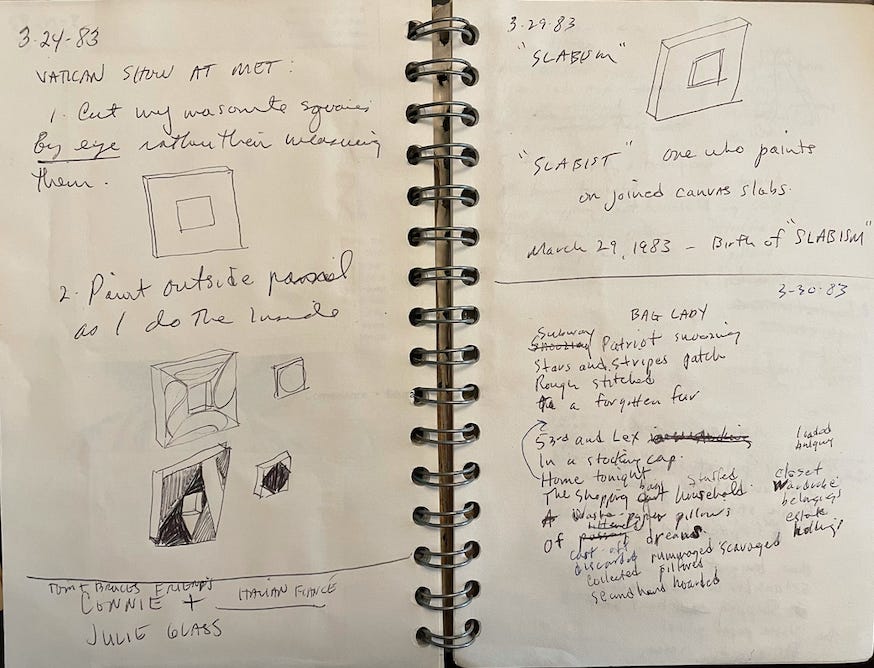 3-24-83
VATICAN SHOW AT MET:
1. Cut my masonite squares
By eye rather then measuring
them.
2. Paint outside panel
as I do The Inside
TOM & BRUCES FRIENDS
CONNIE + ITALIAN FIANCÉ
JULIE GLASS
3-29-83
"SLABISM"
"SLABIST" one who paints
on joined canvas slabs.
March 29, 1983 - Birth of "SLABISM"
3-30-83
BAG LADY
Subway
Snoozing Patriot snoozing
Stars and Stripes patch
Rough stitched
to a forgotten fur
53rd and Lex
loaded
bulging
In a stocking cap.
Home tonight
The shopping cart household
bag stuffed
closet
wardrobe
belongings
estate
holdings
A waste-paper pillows
Of dreams.
cast off
discarded rummaged scavaged
collected pillows
second hand hoarded